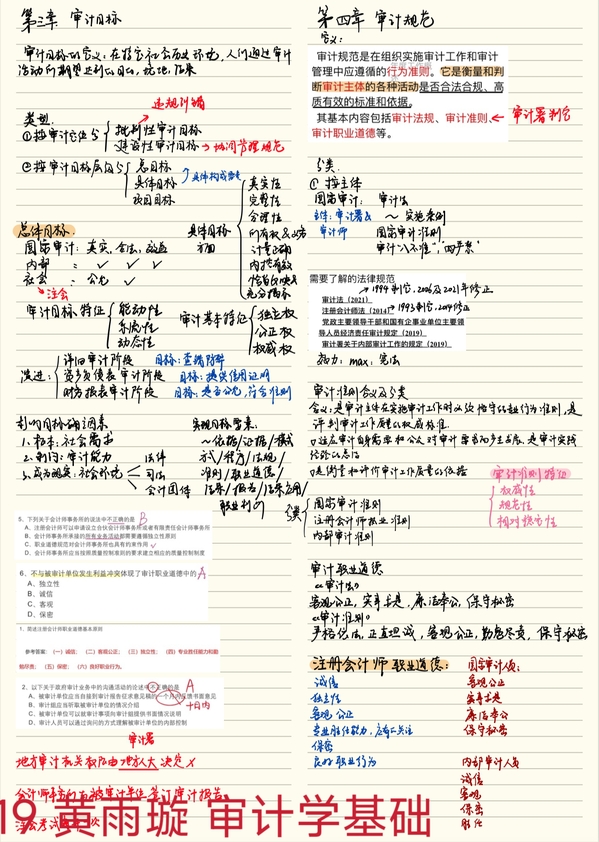 第三章 审计目标
审计目标的定义：在特定社会历史环境，人们通过审计
活动所期望达到的目的、境地、结果
违规纠错
类型：
①按审计定位分
批判性审计目标
建设性审计目标 → 协调管理规范
②按审计目标层次分
总目标
具体目标
项目目标
具体构成要素
总体目标：
国家审计：真实、合法、效益
内部 〃 ✓ ✓ ✓
社会 〃 公允 ✓
→注会
具体目标
方面
真实性
完整性
合理性
所有权&义务
计量正确
充分揭示
审计目标特征
能动性
系统性
动态性
审计基本特征
独立权
公正权
权威权
演进：
详细审计阶段 目标：查错防弊
资产负债表审计阶段 目标：提供信用证明
财务报表审计阶段 目标：是否公允，符合准则
影响目标确立因素
1、根本：社会需求
2、制约：审计能力
3、成为现实：社会环境
法律
司法
会计团体
实现目标要素
～依据/证据/模式
方式/程序/法规/
准则/职业道德/
结果/报告/结果应用/
职业判断
5、下列关于会计师事务所的说法中不正确的是 B
A、注册会计师可以申请设立合伙会计师事务所或者有限责任会计师事务所
B、会计师事务所承接的所有业务活动都需要遵循独立性原则
C、职业道德规范对会计师事务所也具有约束作用
D、会计师事务所应当按照质量控制准则的要求建立相应的质量控制制度
6、不与被审计单位发生利益冲突体现了审计职业道德中的 A
A、独立性
B、诚信
C、客观
D、保密
1、简述注册会计师职业道德基本原则
参考答案：（一）诚信；（二）客观公正；（三）独立性；（四）专业胜任能力和勤
勉尽责；（五）保密；（六）良好职业行为。
2、以下关于政府审计业务中的沟通活动的论述中不正确的是 A
A、被审计单位应当自接到审计报告征求意见稿的一个月内反馈书面意见
十日内
B、审计组应当听取被审计单位的情况介绍
C、被审计单位可以就审计事项向审计组提供书面情况说明
D、审计人员可以通过询问的方式理解被审计单位的内部控制
审计署
地方审计机关权限由地方人大决定 ✗
第四章 审计规范
定义：
审计规范是在组织实施审计工作和审计
管理中应遵循的行为准则。它是衡量和判
断审计主体的各种活动是否合法合规、高
质有效的标准和依据。
其基本内容包括审计法规、审计准则、
审计职业道德等。
→审计署制定
分类：
①按主体
国家审计： 审计法
主体：审计署& ～实施条例
审计师 国家审计准则
审计“八不准”，“四严禁”
需要了解的法律规范
→1994制定，2006及2021年修正
审计法（2021）
注册会计师法（2014） →1993制定，2014修正
党政主要领导干部和国有企事业单位主要领
导人员经济责任审计规定（2019）
审计署关于内部审计工作的规定（2019）
效力：max：宪法
审计准则含义及分类
含义：是审计主体在实施审计工作时必须恪守的行为准则，是
评判审计工作质量的权威标准。
□适应审计自身需要和公众对审计要求而产生发展，是审计实践
经验的总结
□是衡量和评价审计工作质量的依据
审计准则特征
权威性
规范性
相对稳定性
分类
国家审计准则
注册会计师执业准则
内部审计准则
审计职业道德
《审计法》
客观公正，实事求是，廉洁奉公，保守秘密
《审计准则》
严格依法，正直坦诚，客观公正，勤勉尽责，保守秘密
注册会计师职业道德：
诚信
独立性
客观公正
专业胜任能力，应有关注
保密
良好职业行为
国家审计人员：
客观公正
实事求是
廉洁奉公
保守秘密
内部审计人员
诚信
客观
保密
胜任
19 黄雨璇 审计学基础